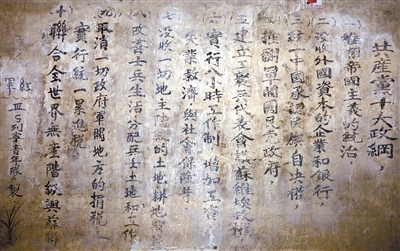 共產黨十大政綱，
(一)推翻帝國主義的統治.
(二)沒收外國資本的企業和銀行.
(三)統一中國承認民族自決權，
推翻軍閥國民黨政府，
(五)建立工農兵代表會議蘇維埃政權
(六)實行八小時工作制、增加工資、
失業救濟與社會保險等.
(七)沒收一切地主階級的土地耕地歸農
(八)改善士兵生活分配兵士土地和工作
(九)取消一切政府軍閥地方的捐稅
實行統一累進稅
(十)聯合全世界無產階級與蘇聯
紅軍